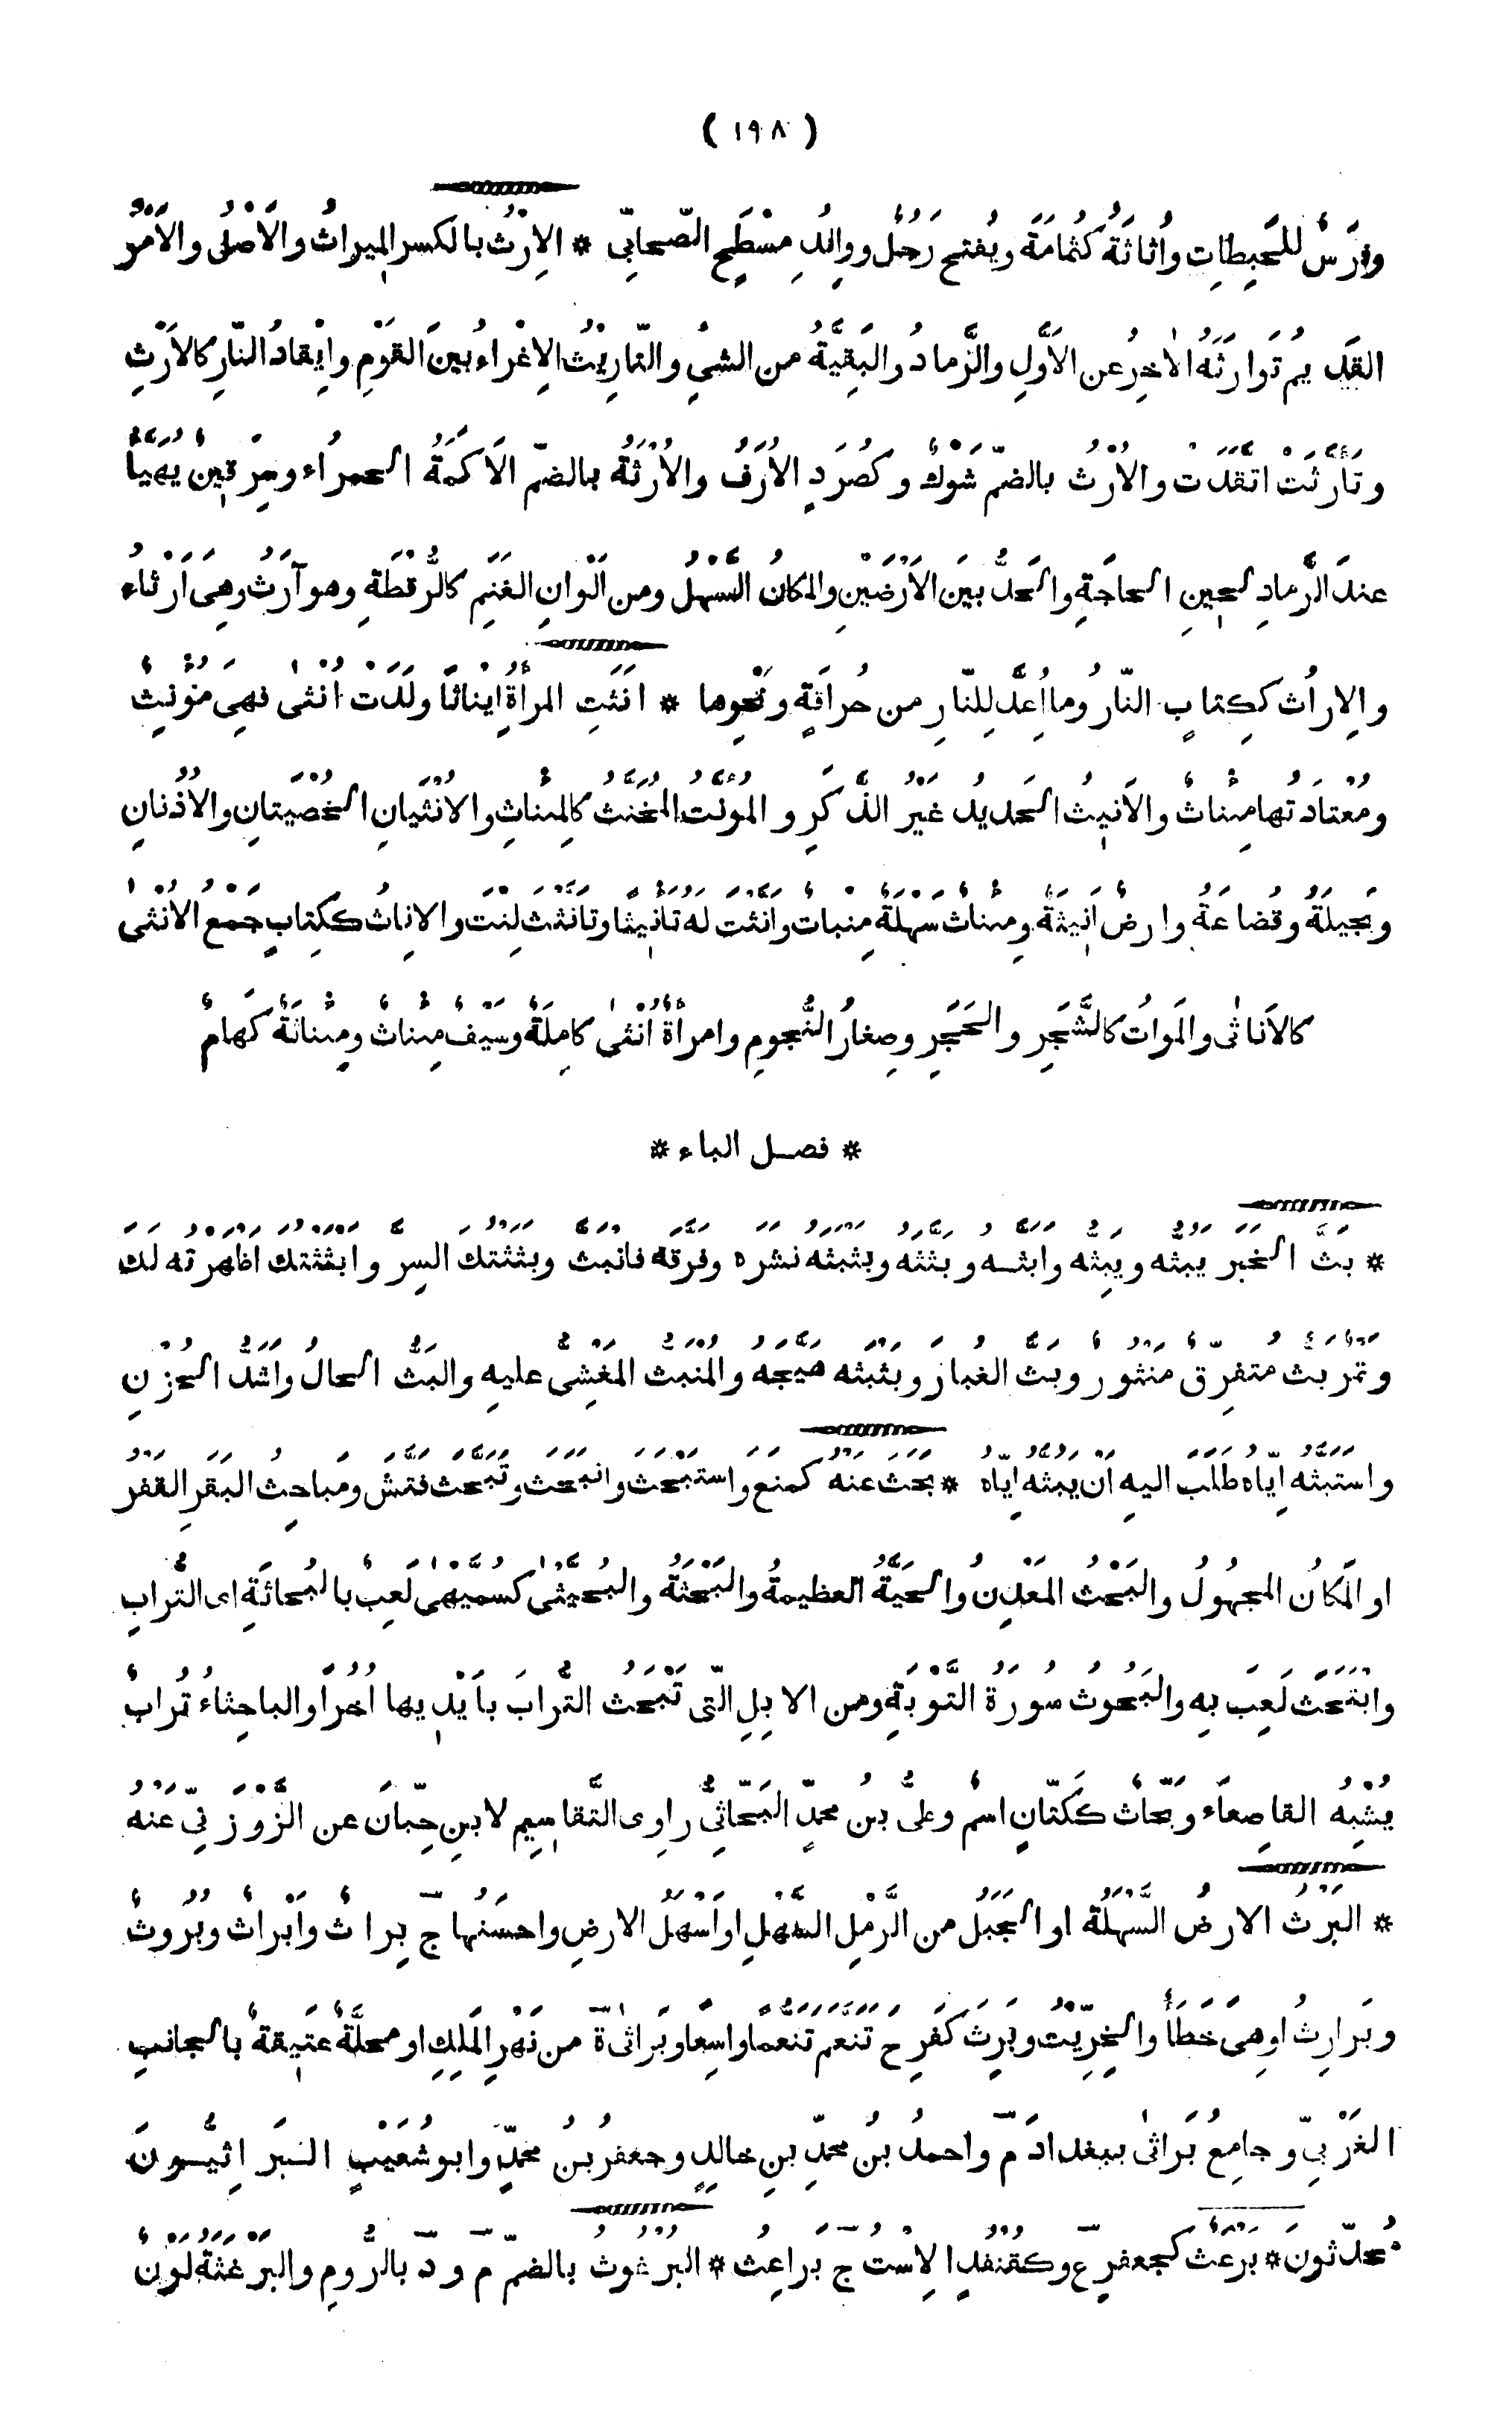 ( ١٩٨ )
وفَرَسٌ للحَبِطاتِ وأُثاثَةُ كثُمامَةَ ويُفتح رَجُلٌ ووالِدُ مِسْطَحٍ الصّحابيّ * الإِرْثُ بالكسر الميراثُ والأَصْلُ والأَمْرُ
القَديمُ تَوارَثَهُ الآخِرُ عن الأَوَّلِ والرَّمادُ والبَقِيَّةُ من الشئِ والتّأرِيثُ الإِغْراءُ بينَ القَوْمِ وإيقادُ النّارِ كالأَرْثِ
وتأَرَّثَتْ اتّقَدَتْ والأُرْثُ بالضمّ شَوْكٌ وكصُرَدٍ الأُرَفُ والأُرْثَةُ بالضمّ الأَكَمَةُ الحمراءُ وسِرْقينٌ يُهَيَّأُ
عندَ الرَّمادِ لحينِ الحاجَةِ والحَدُّ بينَ الأَرْضَيْنِ والمكانُ السَّهْلُ ومن ألْوانِ الغَنَمِ كالرُّقْطَةِ وهو آرَثُ وهِىَ أَرْثاءُ
والإِراثُ ككِتابٍ النّارُ وما أُعِدَّ للنّارِ من حُراقَةٍ ونَحْوِها * آنَثَتِ المرأةُ إيناثًا ولَدَتْ أُنْثى فهِىَ مُؤْنِثٌ
ومُعْتادَتُها مِئْناثٌ والأَنيثُ الحَديدُ غَيْرُ الذَّكَرِ والمُؤَنَّثُ المُخَنَّثُ كالمِئْناثِ والأُنْثَيانِ الخُصْيَتانِ والأُذُنانِ
وبَجيلَةُ وقُضاعَةُ وارضٌ أَنيثَةٌ ومِئْناثٌ سَهْلَةٌ مِنْباتٌ وأَنَّثْتُ لَهُ تأنيثًا وتأنَّثْتُ لِنْتُ والإِناثُ ككِتابٍ جَمْعُ الأُنْثى
كالأَناثى والمَواتُ كالشَّجَرِ والحَجَرِ وصِغارُ النُّجومِ وامرأةٌ أُنْثى كامِلَةٌ وسَيْفٌ مِئْناثٌ ومِئْناثَةٌ كَهامٌ
* فصل الباء *
* بَثَّ الخَبَرَ يَبُثُّهُ ويَبِثُّهُ وأَبَثَّهُ وبَثَّثَهُ وبَثْبَثَهُ نَشَرَه وفَرَّقَهُ فانْبَثَّ وبَثَثْتُكَ السِرَّ وأَبْثَثْتُكَ أَظْهَرْتُه لَكَ
وتَمْرٌ بَثٌّ مُتَفَرّقٌ مَنْثُورٌ وبَثَّ الغُبارَ وبَثْبَثَه هَيَّجَهُ والمُنْبَثُّ المَغْشِىُّ عليهِ والبَثُّ الحالُ وأَشَدُّ الحُزْنِ
واسْتَبَثَّهُ إيّاهُ طَلَبَ اليهِ أن يَبُثَّهُ إيّاهُ * بَحَثَ عَنهُ كَمَنَعَ واسْتَبْحَثَ وانْبَحَثَ وتَبَحَّثَ فَتَّشَ ومَباحِثُ البَقَرِ القَفْرُ
او المَكانُ المجهُولُ والبَحْثُ المَعْدِنُ والحَيَّةُ العظيمةُ والبَحْثَةُ والبُحَّيْثى كسُمَّيْهى لَعِبٌ بالبُحاثَةِ اى التُرابِ
وابْتَحَثَ لَعِبَ بِهِ والبَحُوثُ سُورَةُ التَّوْبَةِ ومن الإبِلِ الّتى تَبْحَثُ التُّرابَ بأيْدِيها أُخُرًا والباحِثاءُ تُرابٌ
يُشْبِهُ القاصِعاءَ وبَحّاثٌ ككَتّانٍ اسْمٌ وعلىُّ بنُ محمدٍ البَحّاثِىُّ راوِى التَّقاسِيمِ لابنِ حِبّانَ عنِ الزَّوْزَنِيّ عَنْهُ
* البَرْثُ الارضُ السَّهْلَةُ او الجَبَلُ من الرَّمْلِ السَّهْلِ او أَسْهَلُ الارضِ واحسَنُها ج بِراثٌ وأَبْراثٌ وبُرُوثٌ
وبَرارِثُ اوهِىَ خَطَأٌ والخِرّيتُ وبَرِثَ كفَرِحَ تَنَعَّمَ تَنَعُّمًا واسِعًا وبَراثى ة من نَهْرِ المَلِكِ او محلّةٌ عتيقةٌ بالجانبِ
الغَرْبِيّ وجامِعُ بَراثى ببغدادَ م واحمدُ بنُ محمّدِ بنِ خالِدٍ وجعفرُ بنُ محمّدٍ وابو شُعَيْبٍ البَراثِيُّونَ
مُحدّثونَ * بَرْعَثٌ كجعفرٍ ع وكقنفذٍ الإِسْتُ ج بَراعِثُ * البُرْغوثُ بالضمّ م ود بالرُّومِ والبَرْغَثَةُ لَوْنٌ